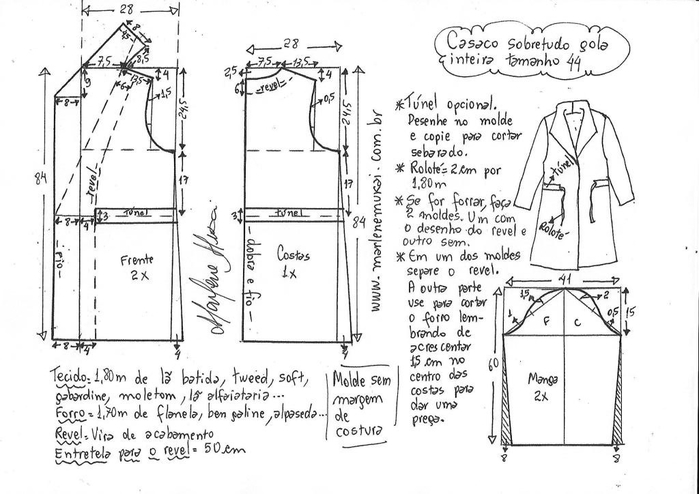 Casaco sobretudo gola
inteira tamanho 44
28
8
15
8,5
7,5
13,5
4
9
6
1,5
8
24,5
84
17
revel
túnel
3
8
4
fio
Frente
2x
8
4
4
28
2,5
7,5
13,5
4
6
revel
0,5
24,5
17
84
3
túnel
dobra e fio
Costas
1x
4
www.marlenemukai.com.br
* Túnel opcional.
Desenhe no molde
e copie para cortar
sebarado.
* Rolotê=2cm por
1,80m
* Se for forrar, faça
2 moldes. Um com
o desenho do revel e
outro sem.
* Em um dos moldes
separe o revel.
A outra parte
use para cortar
o forro lem-
brando de
acrescentar
15 cm no
centro das
costas para
dar uma
prega.
túnel
Rolotê
41
1,5
2
1
0,5
15
F
C
60
Manga
2x
8
8
Tecido=1,80m de lã batida, tweed, soft,
gabardine, moletom, lã alfaiataria...
Forro=1,70m de flanela, bengaline, alpaseda...
Revel=Vira de acabamento
Entretela para o revel=50cm
Molde sem
margem
de
costura